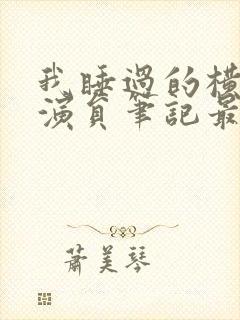 我睡過的橫
演員筆記最
蕭美琴